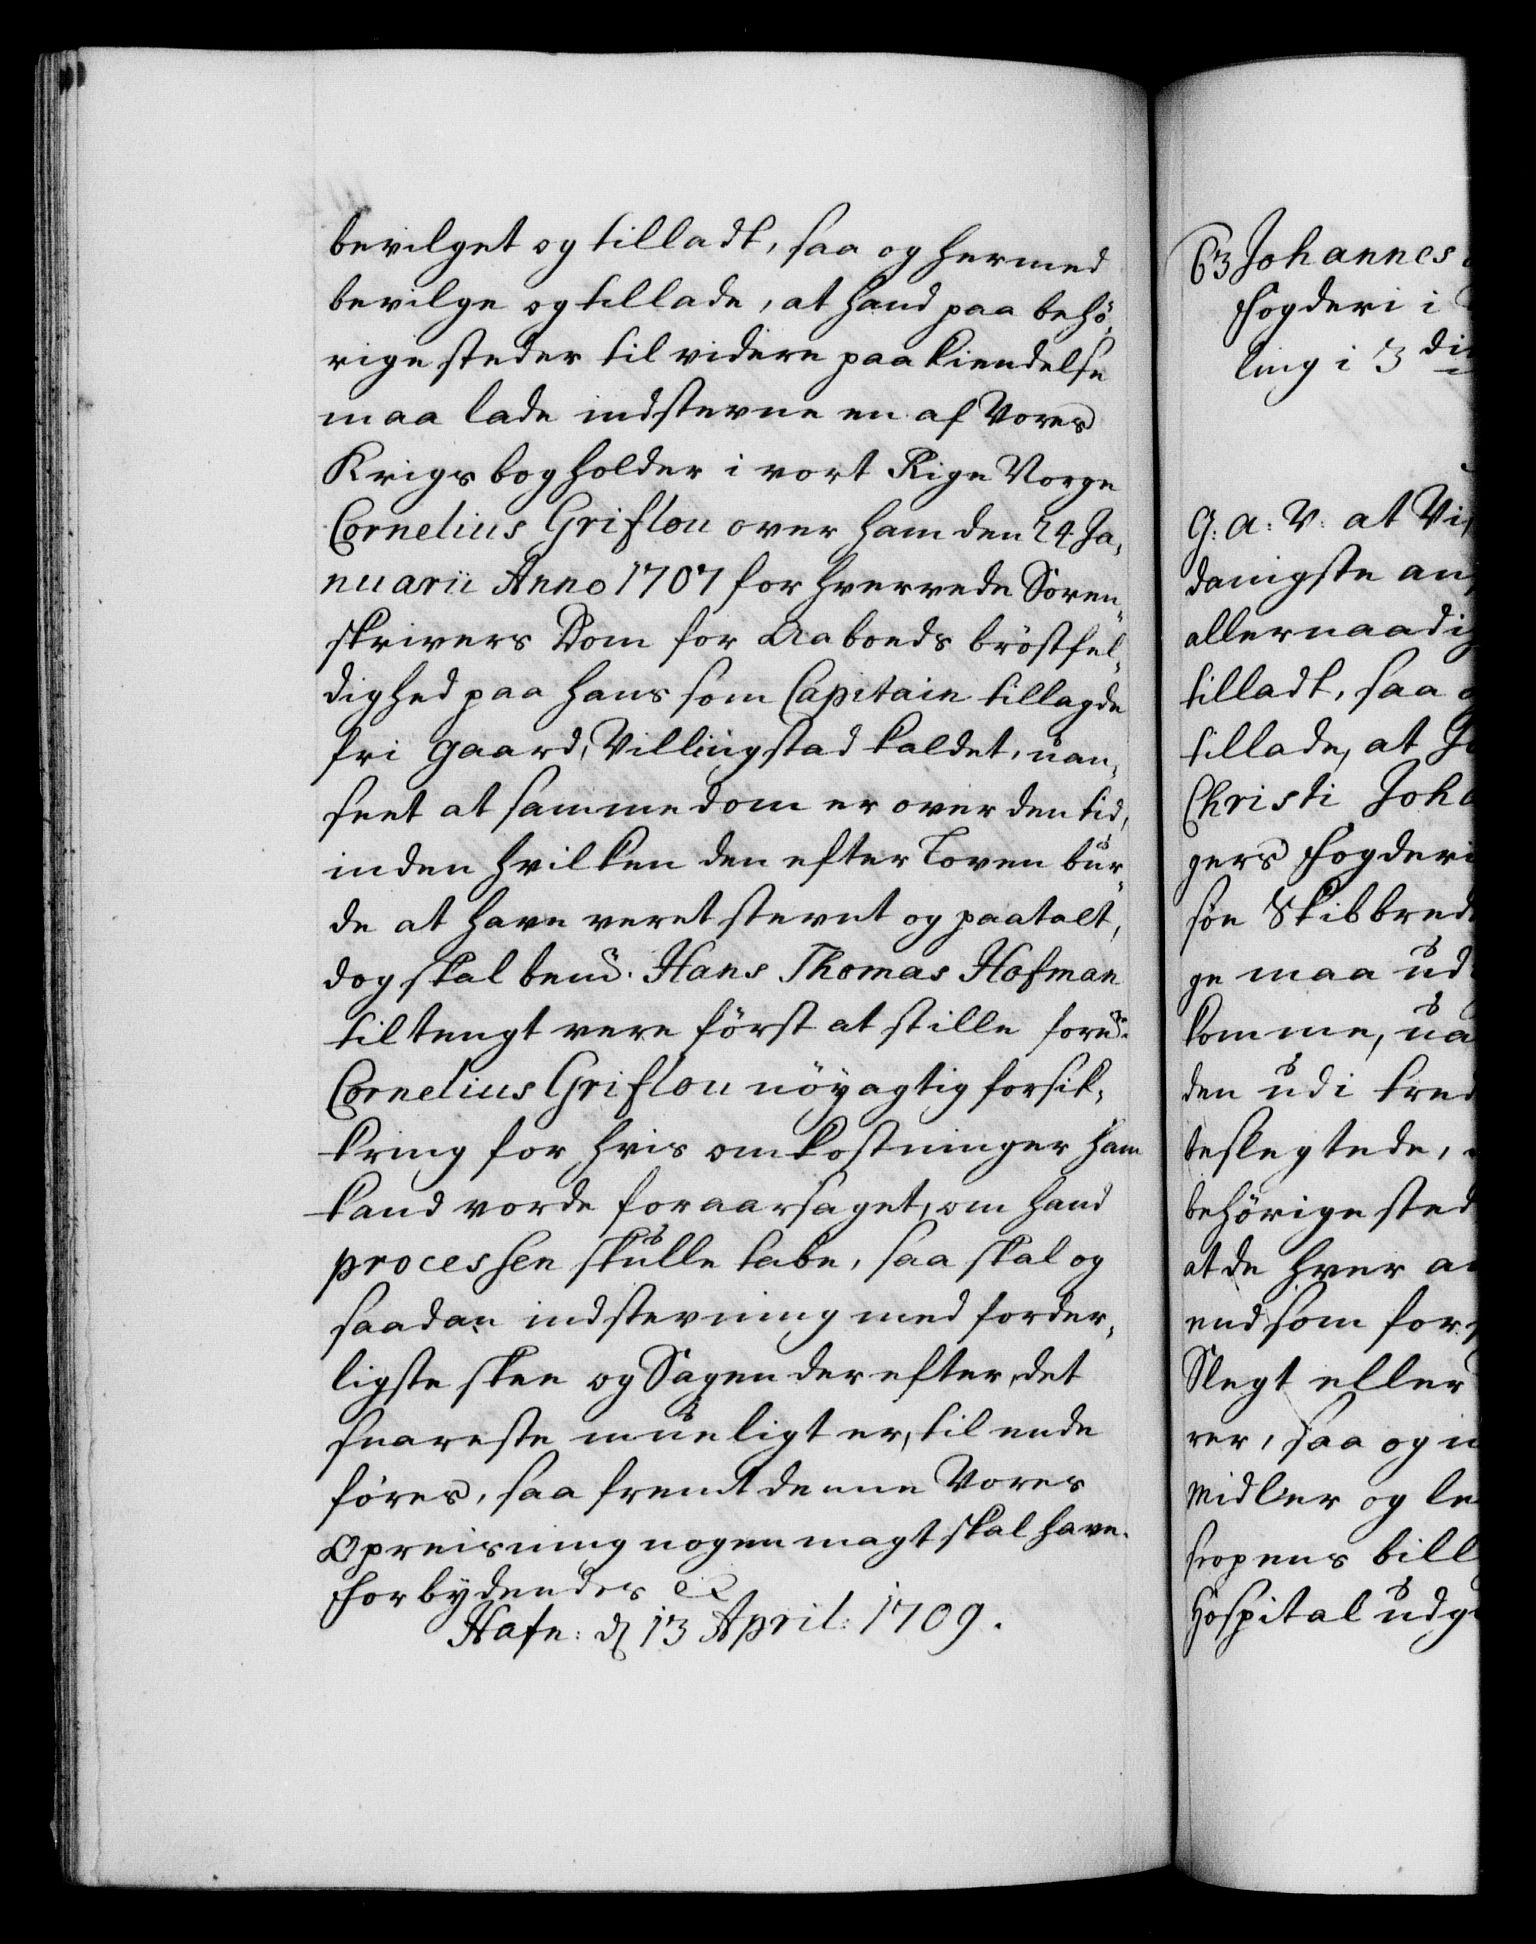 bevilget og tilladt, saa og hermed
bevilge og tillade, at hand paa behö„
rige steder til videre paakiendelse
maa lade indsterne en af Vores
Krigsbogholder i vort Rige Norge
Cornelius Griflou over ham den 24 Ja„
nuarii Anno 1707 forhvervede Soren„
skrivers Dom for Aaboeds bröstfel„
dighed paa hans som Capitain tillagde
fri gaard, Villingstad kaldet, uan„
seet at samme dom er over den tid,
inden hvilken den efter Loven bur„
de at have veret stevnt og paatalt,
dog skal bemd. Hans Thomas Hofman
tiltengt vere först at stille fornd.
Cornelius Griflou nöyagtig forsik„
kring for hvis omkostninger ham
kand vorde foraarsaget, om hand
processen skulle tabe, saa skal og
saadan indstevning med forder„
ligste skee og Sagen derefter, det
snareste mueligt er, til ende
föres, saafremt denne Vores
Opreisning nogen magt skal have.
Forbydendes etc
Hafn: d 13 April: 1709.
63 Johannes
Fogderi i
ling i 3 die
G: A: V: at Vi
danigste an
allernaadig
tilladt, saa
tillade, at
Christi Joh
gers Fogderi
söe Skibbred
ge maa ud
komme, ua
den udi tred
beslegtede,
behörige sted
at de hver a
end som for
Slegt eller
rer, saa og
Midler og le
scopens bill
Hospital udg